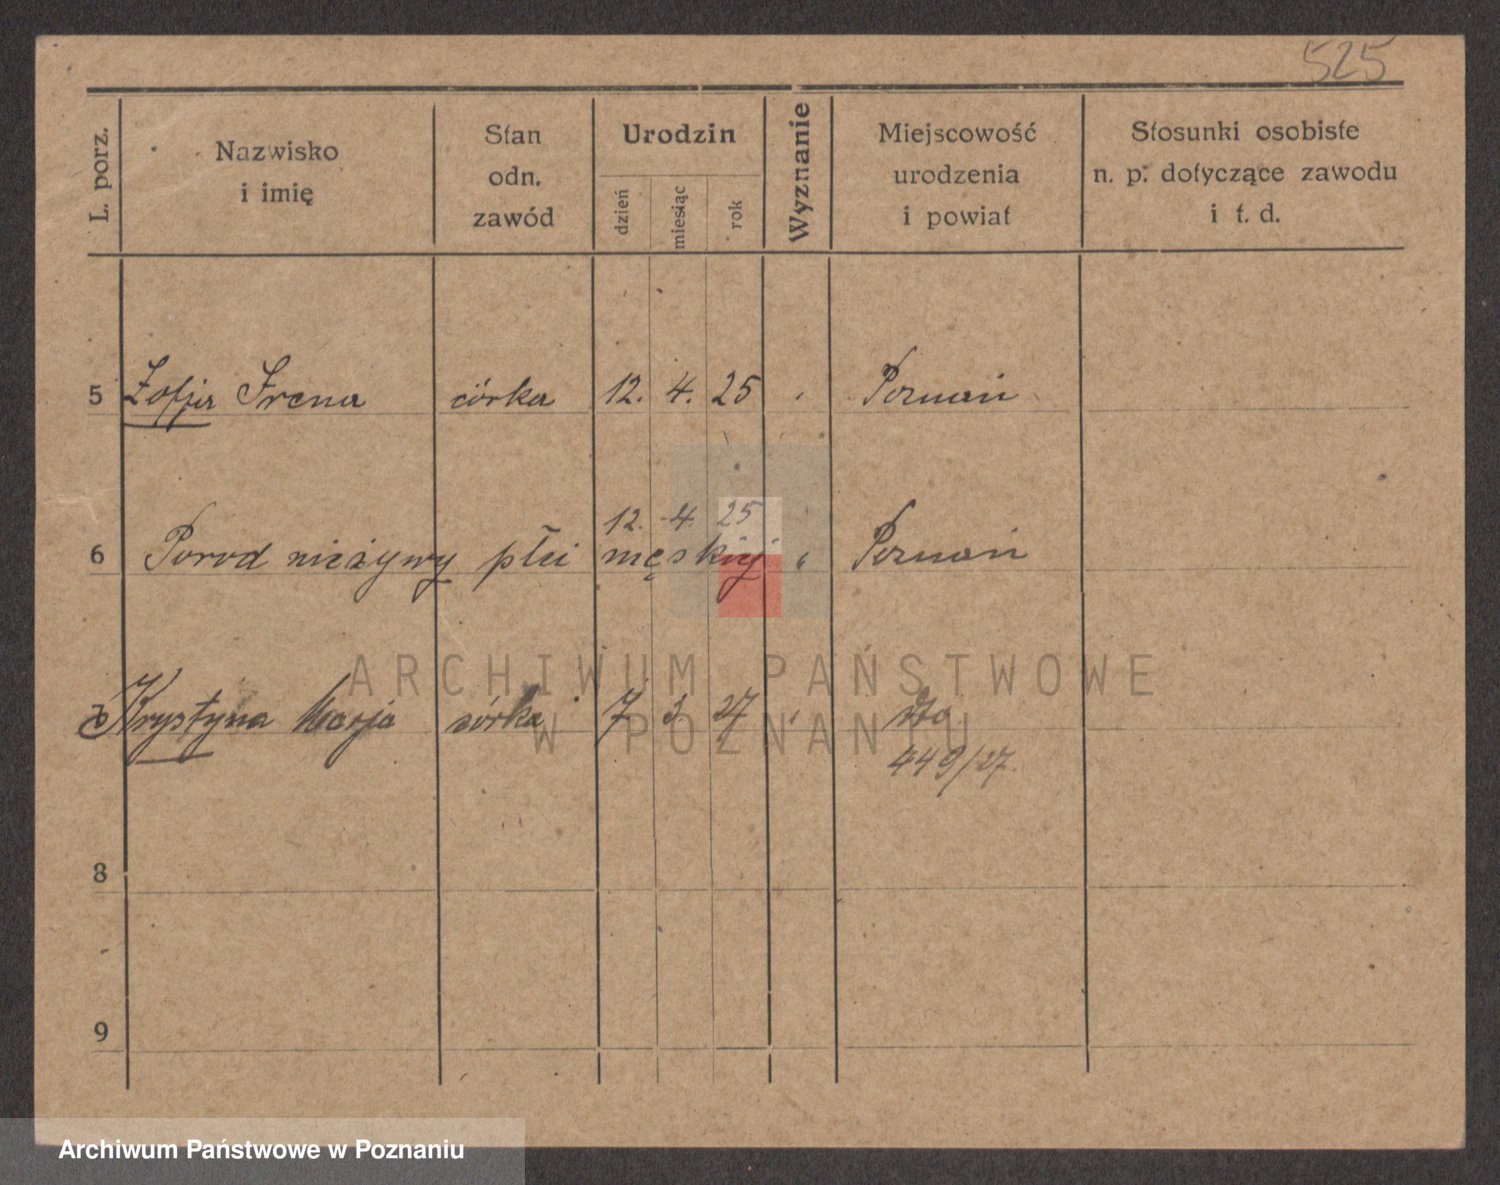 525
L. porz.
Nazwisko
i imię
Stan
odn.
zawód
Urodzin
dzień
miesiąc
rok
Wyznanie
Miejscowość
urodzenia
i powiat
Stosunki osobiste
n. p. dotyczące zawodu
i t. d.
5 Zofja Irena córka 12. 4. 25 Poznań
12. 4. 25
6 Poród nieżywy płci męskiej " Poznań
7 Krystyna Marja córka 7 3 27 " dto
449/27.
8
9
ARCHIWUM PAŃSTWOWE
W POZNANIU
Archiwum Państwowe w Poznaniu